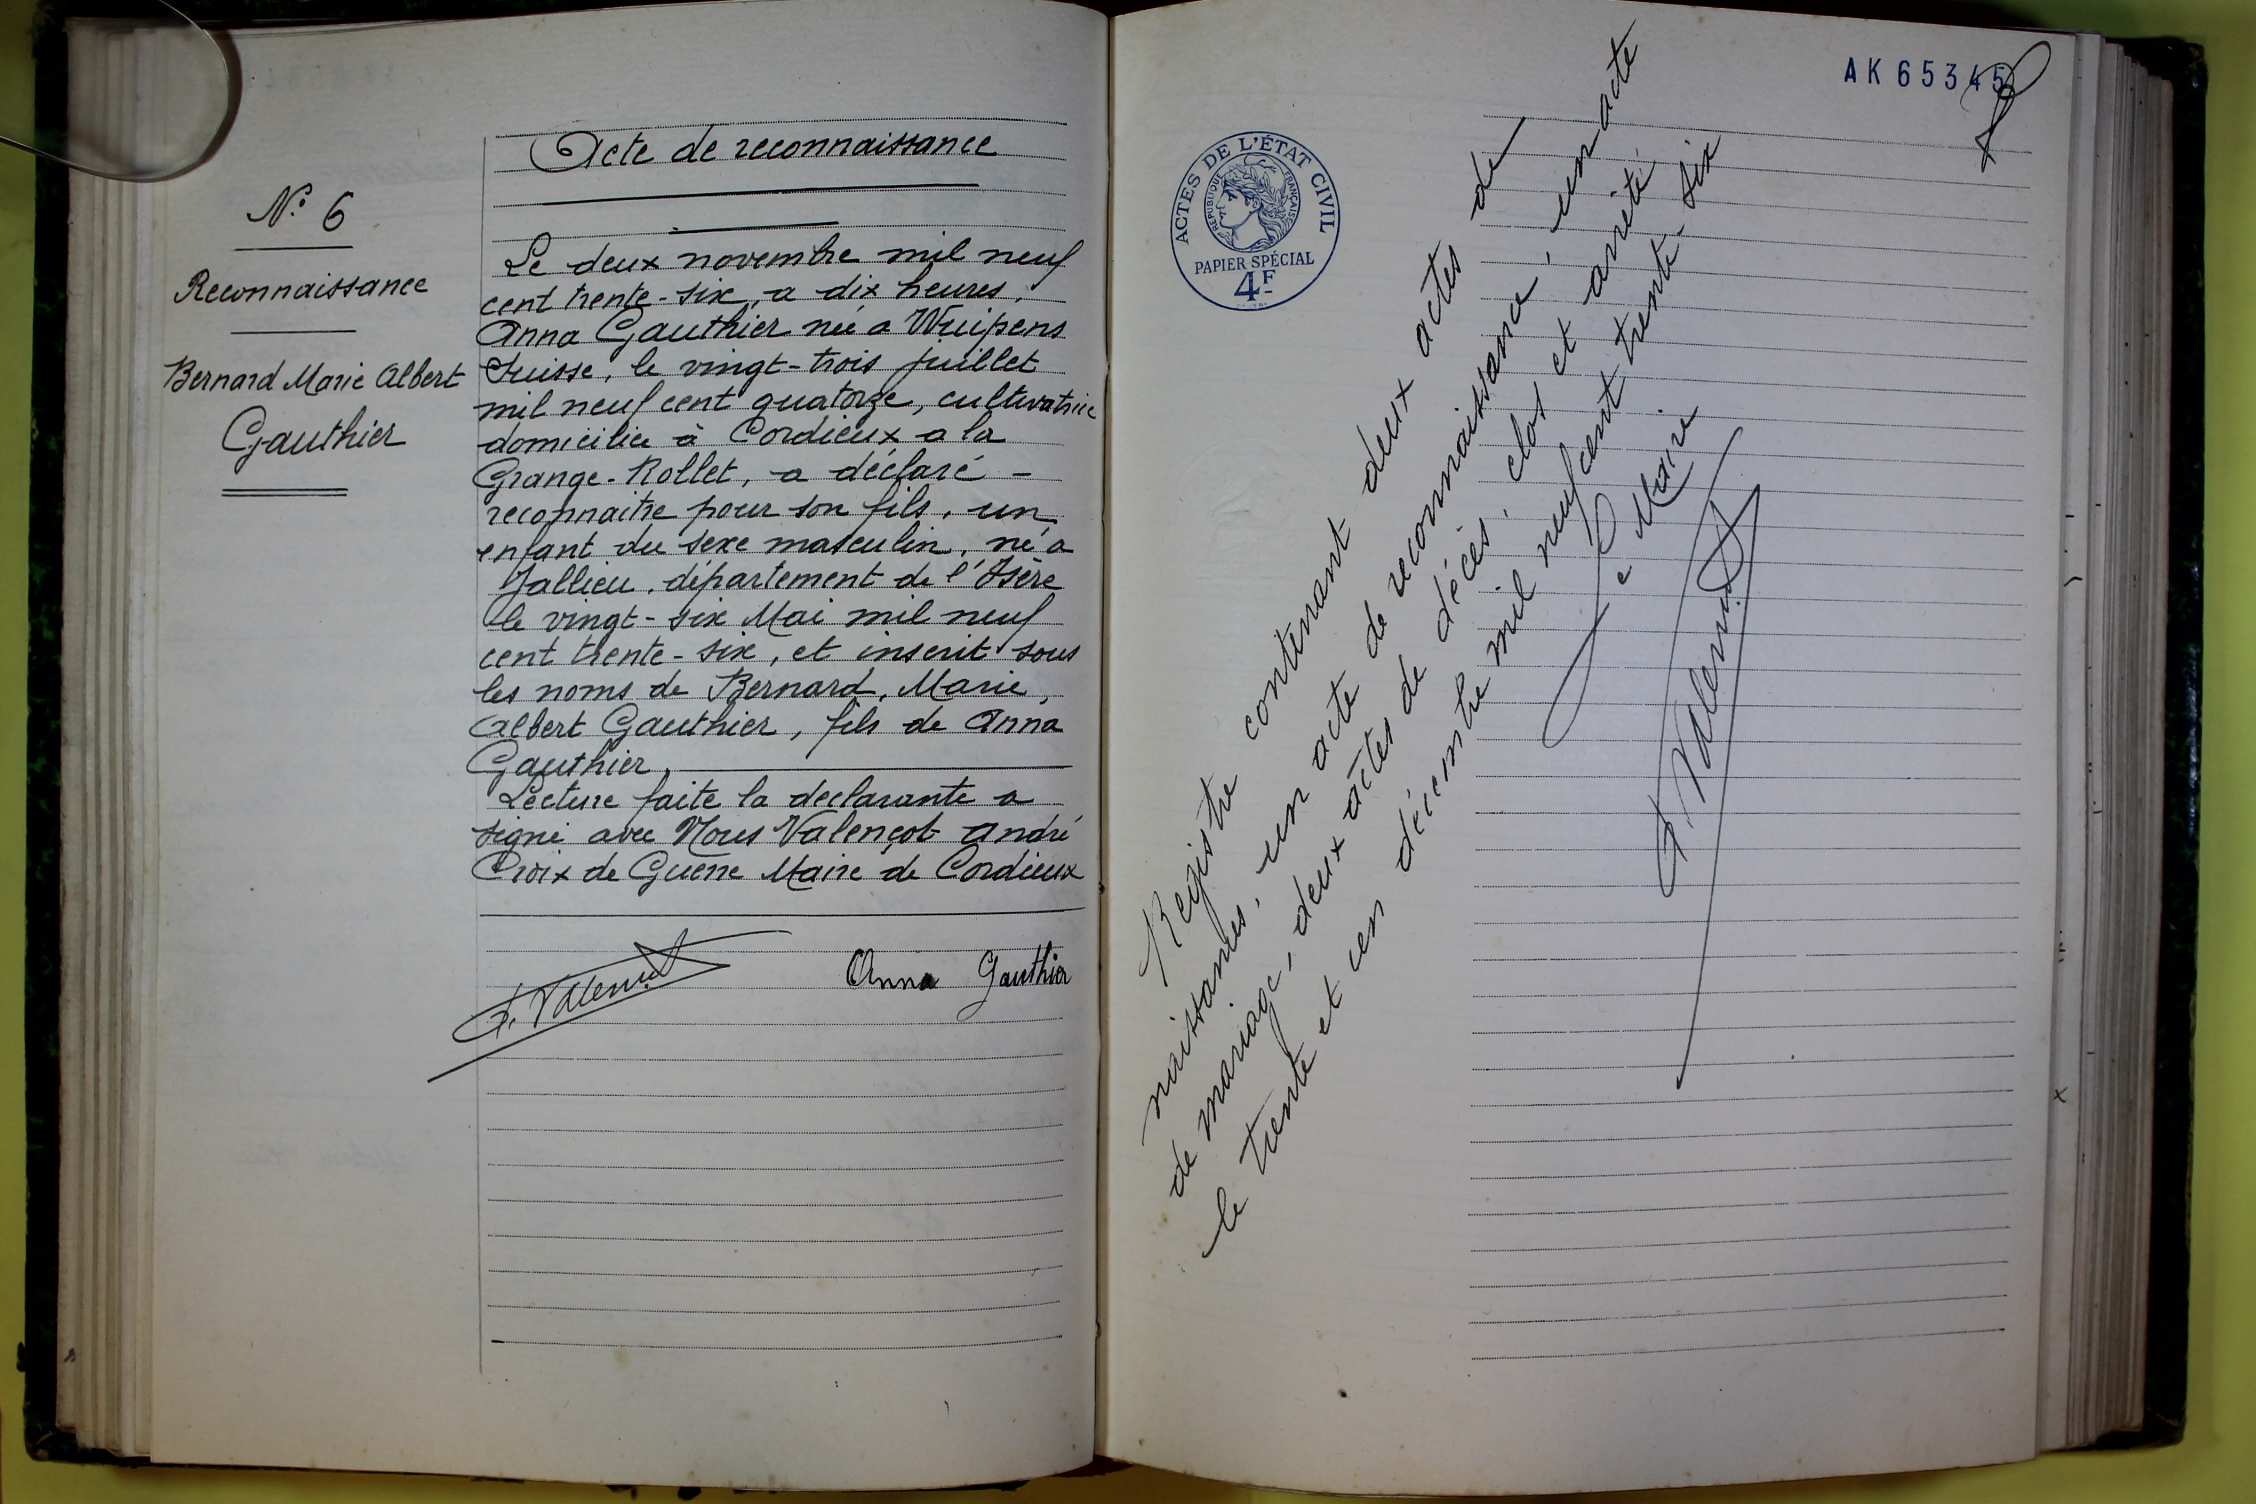 Acte de reconnaissance
N° 6
Reconnaissance
Bernard Marie Albert
Gauthier
Le deux novembre mil neuf
cent trente-six, a dix heures,
Anna Gauthier née a Wuipens
Suisse, le vingt-trois juillet
mil neuf cent quatorze, cultivatrice
domiciliée à Cordieux a la
Grange-Rollet, a déclaré -
reconnaitre pour son fils, un
enfant du sexe masculin, né a
Jallieu, département de l'Isère
le vingt-six Mai mil neuf
cent trente-six, et inscrit sous
les noms de Bernard, Marie,
Albert Gauthier, fils de Anna
Gauthier,
Lecture faite la declarante a
signé avec Nous Valençot André
Croix de Guerre Maire de Cordieux
A. Valençot
Anna Gauthier
AK 65345
ACTES DE L'ÉTAT CIVIL
RÉPUBLIQUE FRANÇAISE
PAPIER SPÉCIAL
4F
Registre contenant deux actes de
naissances, un acte de reconnaissance, un acte
de mariage, deux actes de décès, clos et arrêté
le trente et un décembre mil neuf cent trente-six
Le Maire
A. Valençot